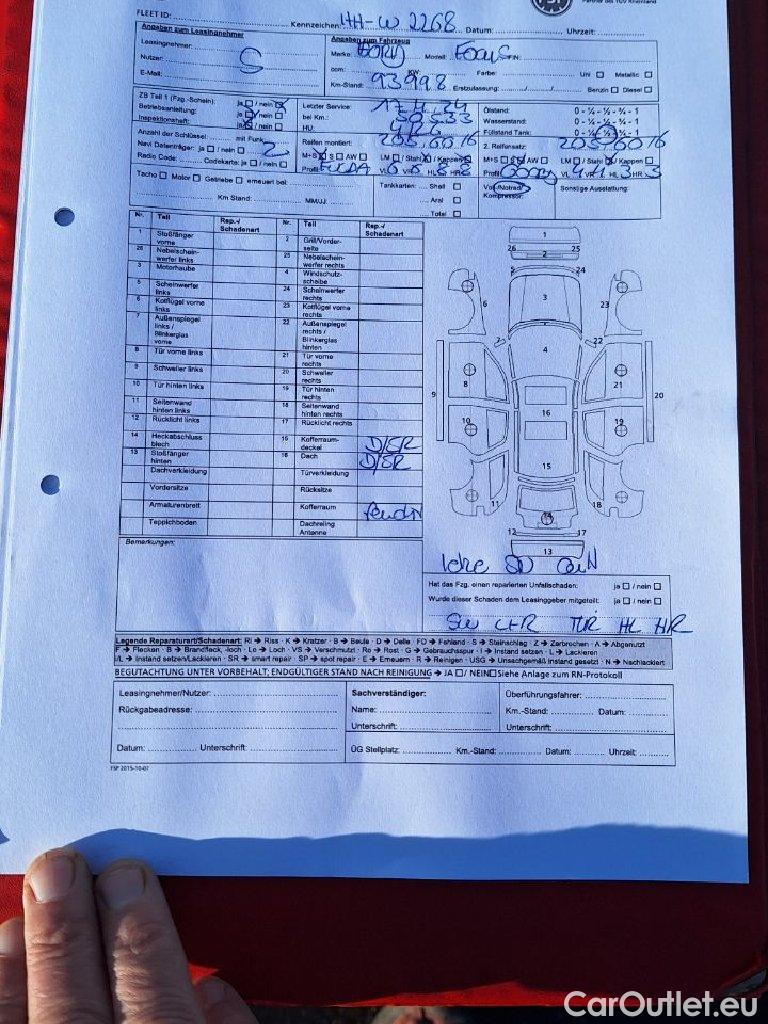 Partner des TÜV Rheinland
FLEET ID: Kennzeichen: HH-W 2268 Datum: Uhrzeit:
Angaben zum Leasingnehmer Angaben zum Fahrzeug
Leasingnehmer: Marke: FORD Modell: FOCUS FIN:
Nutzer: S ccm: KW Farbe: Uni ☐ Metallic ☐
E-Mail: Km-Stand: 93998 Erstzulassung: Benzin ☐ Diesel ☐
ZB Teil 1 (Fzg.-Schein): ja ☐ / nein ☐ Letzter Service: Ölstand: 0 - ¼ - ½ - ¾ - 1
Betriebsanleitung: ja ☐ / nein ☐ bei Km.: 50533 Wasserstand: 0 - ¼ - ½ - ¾ - 1
Inspektionsheft: ja ☐ / nein ☐ HU: Füllstand Tank: 0 - ¼ - ½ - ¾ - 1
Anzahl der Schlüssel: mit Funk: 2 Reifen montiert: 205.60 16 2. Reifensatz: 205/60 16
Navi Datenträger: ja ☐ / nein ☐ M+S ☐ S ☐ AW ☐ LM ☐ / Stahl ☐ / Kappen ☐ M+S ☐ S ☐ AW ☐ LM ☐ / Stahl ☐ / Kappen ☐
Radio Code: Codekarte: ja ☐ / nein ☐ Profil FULDA VL 8 VR 8 HL 8 HR 8 Profil VL 4 VR 4 HL 3 HR 3
Tacho ☐ Motor ☐ Getriebe ☐ erneuert bei: Tankkarten: Shell ☐ Voll-/Notrad/ Sonstige Ausstattung:
Kompressor:
Km Stand: MIMUJ: Aral ☐
Total ☐
Nr. Teil Rep.-/ Schadenart Nr. Teil Rep.-/ Schadenart
1 Stoßfänger vorne 2 Grill/Vorderseite
26 Nebelscheinwerfer links 25 Nebelscheinwerfer rechts
3 Motorhaube 4 Windschutzscheibe
5 Scheinwerfer links 24 Scheinwerfer rechts
6 Kotflügel vorne links 23 Kotflügel vorne rechts
7 Außenspiegel links / Blinkerglas vorne 22 Außenspiegel rechts / Blinkerglas hinten
8 Tür vorne links 21 Tür vorne rechts
9 Schweller links 20 Schweller rechts
10 Tür hinten links 19 Tür hinten rechts
11 Seitenwand hinten links 18 Seitenwand hinten rechts
12 Rücklicht links 17 Rücklicht rechts
14 Heckabschlussblech 15 Kofferraumdeckel D/SR
13 Stoßfänger hinten 16 Dach D/SR
Dachverkleidung Türverkleidung
Vordersitze Rücksitze
Armaturenbrett Kofferraum
Teppichboden Dachreling Antenne
1
26 25
2
5 24
6 3 23
7 22
4
8 21
9 20
10 16 19
15
11 18
14
12 17
13
Bemerkungen:
Hat das Fzg. einen reparierten Unfallschaden: ja ☐ / nein ☐
Wurde dieser Schaden dem Leasinggeber mitgeteilt: ja ☐ / nein ☐
SW L+R TÜR HL HR
Legende Reparaturart/Schadenart: RI → Riss · K → Kratzer · B → Beule · D → Delle · FD → Fehland · S → Steinschlag · Z → Zerbrochen · A → Abgenutzt
F → Flecken · B → Brandfleck, -loch · Lo → Loch · VS → Verschmutzt · Ro → Rost · G → Gebrauchsspur · I → Instand setzen · L → Lackieren
I/L → Instand setzen/Lackieren · SR → smart repair · SP → spot repair · E → Erneuern · R → Reinigen · USG → Unsachgemäß instand gesetzt · N → Nachlackiert
BEGUTACHTUNG UNTER VORBEHALT; ENDGÜLTIGER STAND NACH REINIGUNG → JA ☐ / NEIN ☐ Siehe Anlage zum RN-Protokoll
Leasingnehmer/Nutzer: Sachverständiger: Überführungsfahrer:
Rückgabeadresse: Name: Km.-Stand: Datum:
Unterschrift: Unterschrift:
Datum: Unterschrift: ÜG Stellplatz: Km.-Stand: Datum: Uhrzeit:
FSP 2015-10-07
CarOutlet.eu